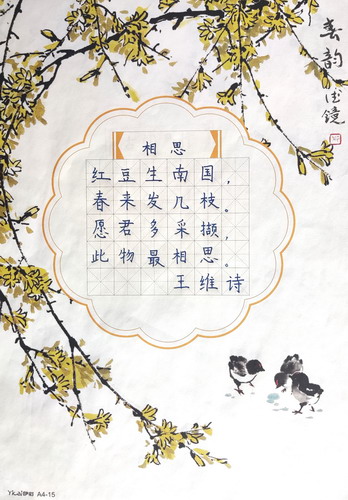 春韵
德镜
相思
红豆生南国，
春来发几枝。
愿君多采撷，
此物最相思。
王维诗
A4-15